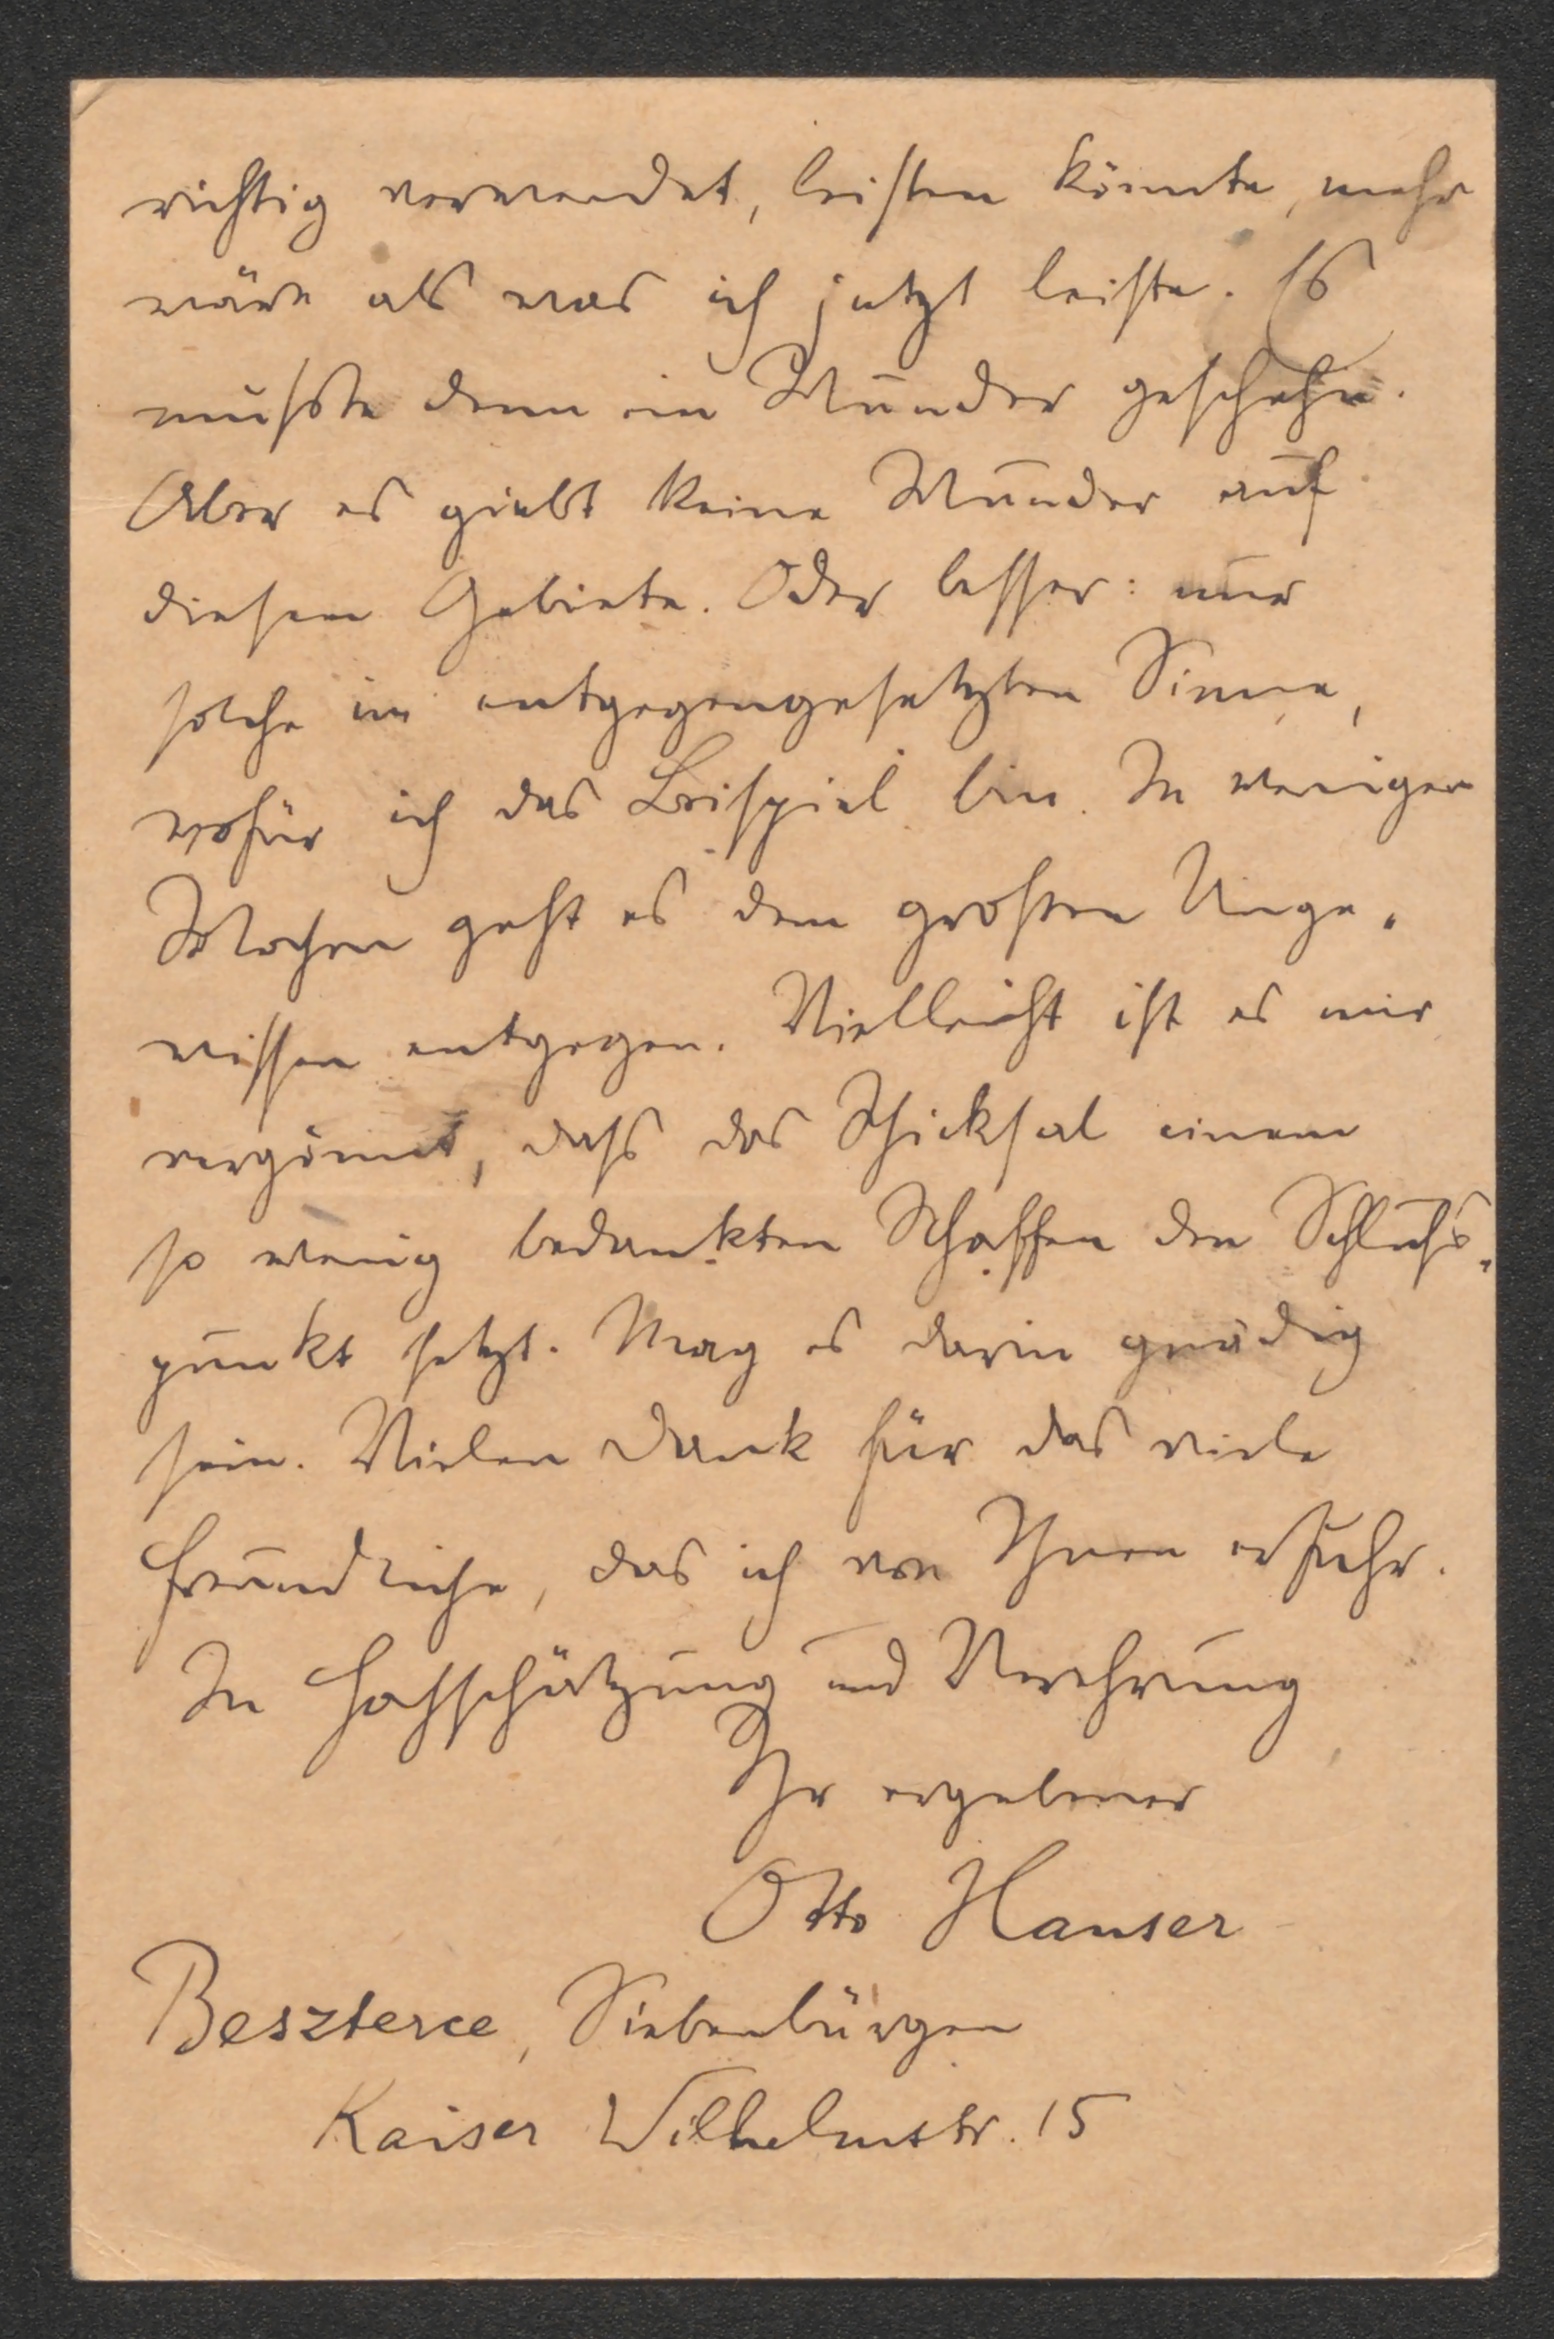 richtig verwendet, leisten könnte, mehr
wäre als was ich jetzt leiste. Es
müsste denn ein Wunder geschehn.
Aber es giebt keine Wunder auf
diesem Gebiete. Oder besser: nur
solche im entgegengesetzten Sinne,
wofür ich das Beispiel bin. In wenigen
Wochen geht es dem grossen Unge-
wissen entgegen. Vielleicht ist es mir
vergönnt, dass das Schicksal einem
so wenig bedankten Schaffen den Schluss-
punkt setzt. Mag es darin gnädig
sein. Vielen Dank für das viele
freundliche, das ich von Ihnen erfuhr.
In Hochschätzung und Verehrung
Ihr ergebener
Otto Hauser
Beszterce, Siebenbürgen
Kaiser Wilhelmstr. 15